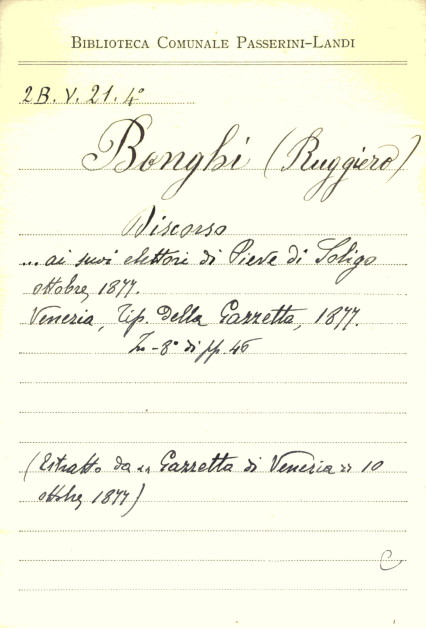 BIBLIOTECA COMUNALE PASSERINI-LANDI
2B. V. 21. 4º
Bonghi (Ruggiero)
Discorso
... ai suoi elettori di Pieve di Soligo
ottobre 1877.
Venezia, Tip. della Gazzetta, 1877.
In-8º di pp. 46
(Estratto da «Gazzetta di Venezia» 10
ottobre 1877)
C